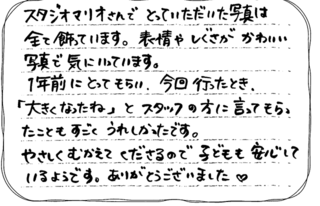 スタジオマリオさんで とっていただいた写真は
全て飾っています。表情や しぐさが かわいい
写真で 気にいっています。
1年前に とってもらい、今回 行ったとき、
「大きくなったね」と スタッフの方に 言ってもら、
たことも すごく うれしかったです。
やさしく むかえて くださるので 子どもも 安心して
いるようです。ありがとうございました♡